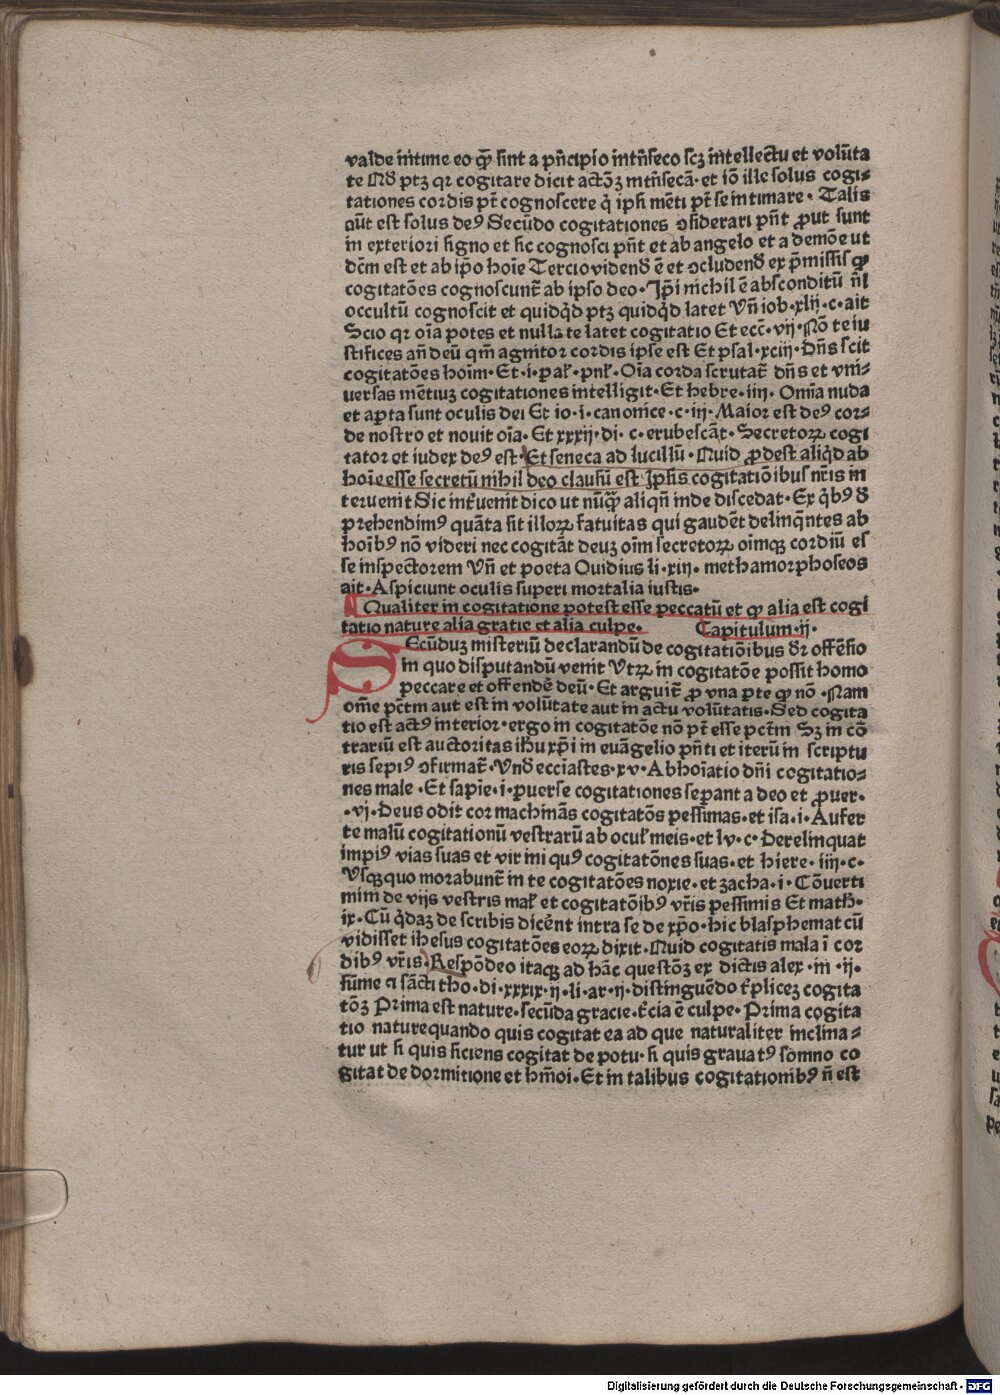 valde intime eo ꝙ sint a pn̄cipio intn̄seco scꝫ intellectu et volūta
te Nd̄ ptꝫ qꝛ cogitare dicit actōꝫ intn̄secā· et iō ille solus cogi⸗
tationes cordis pt̄ cognoscere q̇ ipsi mēti pt̄ se intimare· Talis
aūt est solus deꝰ Secūdo cogitationes ꝯsiderari pn̄t ꝓut sunt
in exteriori signo et sic cognosci pn̄t et ab angelo et a demōe ut
dc̄m est et ab ip̄o hoīe Tercio vidend̄ ē et ꝯcludend̄ ex p̄missis ꝙ
cogitatōes cognoscunt̄ ab ipso deo· Ip̄i nichil ē absconditū n̄l
occultū cognoscit et quidq̇d ptꝫ quidq̇d latet Vn̄ iob·xlij·c·ait
Scio qꝛ oīa potes et nulla te latet cogitatio Et ecc̄·vij·Nō te iu
stifices an̄ deū qm̄ agnitor cordis ipse est Et psal·xciij·Dn̄s scit
cogitatōes hoīm·Et·i·paꝉ·pnꝉ·Oīa corda scrutat̄ dn̄s et vni⸗
uersas mētiuꝫ cogitationes intelligit·Et hebre·iiij·Omīa nuda
et apta sunt oculis dei Et io·i·canonice·c·iij·Maior est deꝰ cor⸗
de nostro et nouit oīa·Et xxxij·di·c·erubescāt·Secretoꝝ cogi
tator et iudex deꝰ est·Et seneca ad lucillū·Quid ꝓdest aliq̇d ab
hoīe esse secretū nihil deo clausū est Ip̄sis cogitatiōibus nr̄is in
teruenit Sic int̄uenit dico ut nūꝙ̄ aliqn̄ inde discedat·Ex q̇bꝰ d̄
prehendimꝰ quāta sit illoꝝ fatuitas qui gaudēt delinq̄ntes ab
hoībꝰ nō videri nec cogitāt deuꝫ oīm secretoꝝ oīmqꝫ cordiū es
se inspectorem Vn̄ et poeta Ouidius li·xiij·methamorphoseos
ait·Aspiciunt oculis superi mortalia iustis·
Qualiter in cogitatione potest esse peccatū et ꝙ alia est cogi
tatio nature alia gratie et alia culpe· Capitulum·ij·
Secūduꝫ misteriū declarandū de cogitatiōibus dr̄ offēsio
in quo disputandū venit Vtꝝ in cogitatōe possit homo
peccare et offendē deū·Et arguit̄ ꝓ vna pte ꝙ nō·Nam
om̄e pctm̄ aut est in volūtate aut in actu volūtatis·Sed cogita
tio est actꝰ interior·ergo in cogitatōe nō pt̄ esse pctm̄ Sꝫ in cō
trariū est auctoritas ihū xp̄i in euāgelio pn̄ti et iterū in scriptu
ris sepiꝰ ꝯfirmat̄·Vnd̄ ecciastes·xv·Abhoīatio dn̄i cogitatio⸗
nes male·Et sapie·i·ꝑuerse cogitationes sepant a deo et ꝓuer·
·vi·Deus odit cor machinās cogitatōs pessimas·et isa·i·Aufer
te malū cogitationū vestrarū ab oculꝉ meis·et lv·c·Derelinquat
impiꝰ vias suas et vir iniquꝰ cogitatōnes suas·et hiere·iiij·c·
Vsqꝫquo morabunt̄ in te cogitatōes noxie·et zacha·i·Cōuerti
mim̄ de vijs vestris maꝉ et cogitatōibꝰ vr̄is pessimis Et math̄·
ix·Cū q̇daꝫ de scribis dicēnt intra se de xp̄o·hic blasphemat cū
vidisset ihesus cogitatōes eoꝝ dixit·Quid cogitatis mala ī cor
dibꝰ vr̄is·Respōdeo itaqꝫ ad hāc questōꝫ ex dictis alex·in·ij·
sume ⁊ sācti tho·di·xxxix·ij·li·ar·ij·distinguēdo tp̄licez cogita
tōꝫ Prima est nature·secūda gracie·tc̄ia ē culpe·Prima cogita
tio nature quando quis cogitat ea ad que naturaliter inclina⸗
tur ut si quis siciens cogitat de potu·si quis grauatꝰ somno co
gitat de dormitione et hm̄oi·Et in talibus cogitationibꝰ n̄ est
Digitalisierung gefördert durch die Deutsche Forschungsgemeinschaft · DFG